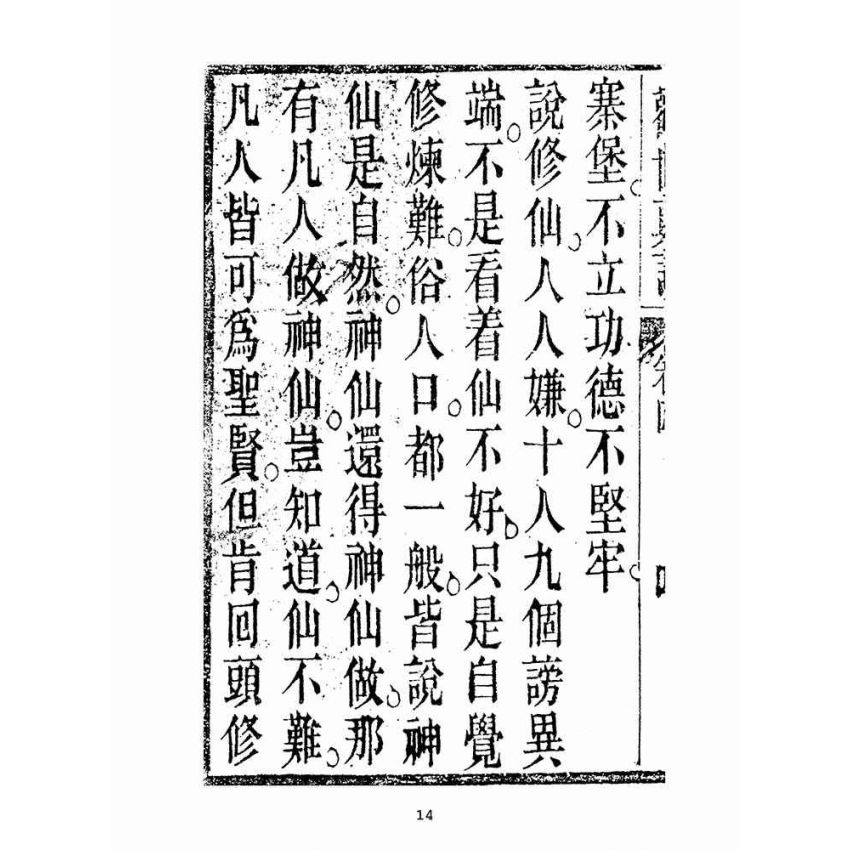 寨堡。不立功德不堅牢。
說修仙。人人嫌。十人九個謗異
端。不是看着仙不好。只是自覺
修煉難。俗人口。都一般。皆說神
仙是自然。神仙還得神仙做。那
有凡人做神仙。豈知道。仙不難。
凡人皆可爲聖賢。但肯回頭修
14